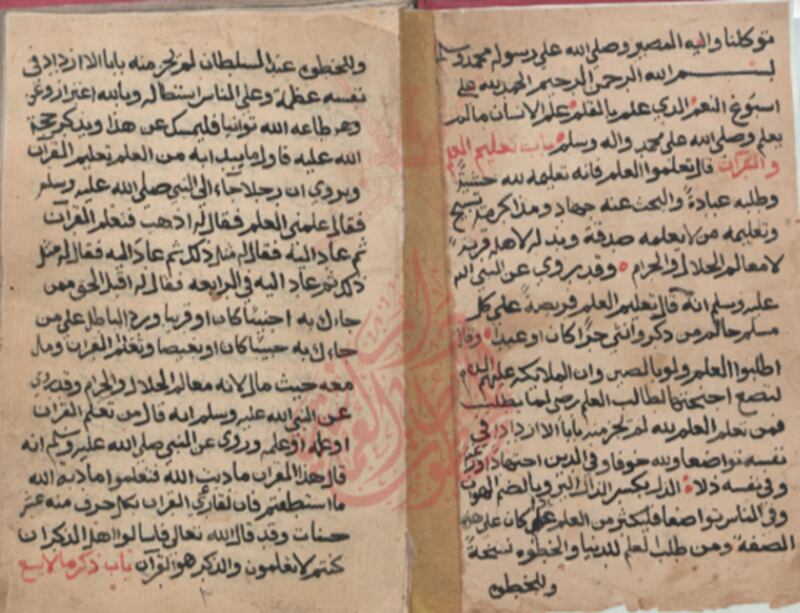 توكلنا واليه المصير وصلى الله على رسوله محمد وسلم
بسم الله الرحمن الرحيم الحمد لله على
اسبوغ النعم الذي علم بالقلم علم الانسان مالم
يعلم وصلى الله على محمد واله وسلم باب تعليم العلم
والقرآن قال تعلموا العلم فانه تعليمه لله خشية
وطلبه عبادة والبحث عنه جهاد ومذاكرته تسبيح
وتعليمه من لا يعلمه صدقة وبذله لاهله قربة
لا معالم الحلال والحرام وقد يروي عن النبي
عليه وسلم انه قال تعليم العلم فريضة على كل
مسلم حالم من ذكر وانثى حرا كان او عبدا وقال
اطلبوا العلم ولو بالصين وان الملائكة عليهم السلام
لتضع اجنحتها لطالب العلم رضى لما يطلب
فمن تعلم العلم لله لم يحز منه بابا الا ازداد في
نفسه تواضعا ولله خوفا وفي الدين اجتهادا
وفي نفسه ذلاة الذل بكسر الذال البر وبالضم الهوان
وفي الناس تواضعا فليكثر من العلم كان على هذه
الصفة ومن طلب العلم للدنيا والحظوة
وللحظوة
وللحظوة عند السلطان لم يحز منه بابا الا ازداد في
نفسه عظمة وعلى الناس استطالة وبالله اغترارا وعن
وعر طاعة الله توانيا فليمسك عن هذا ويذكر حجة
الله عليه فاول ما يبدا به من العلم تعليم القرآن
ويروي ان رجلا جاء الى النبي صلى الله عليه وسلم
فقال علمني العلم فقال له اذهب فتعلم القرآن
ثم عاد اليه فقال له مثل ذلك ثم عاد اليه فقال له مثل
ذلك ثم عاد اليه في الرابعة فقال له اقبل الحق ممن
جاءك به اجنبيا كان او قريبا ورد الباطل على من
جاءك به حبيبا كان او بغيضا وتعلم القرآن ومال
معه حيث مال لانه معالم الحلال والحرام وقد روي
عن النبي الله عليه وسلم انه قال من تعلم القرآن
او علمه وروي عن النبي صلى الله عليه وسلم انه
قال هذا القرآن مادبة الله فتعلموا مادبة الله
ما استطعتم فان لقاري القرآن بكل حرف منه عشر
حسنات وقد قال الله تعالى فاسالوا اهل الذكر ان
كنتم لا تعلمون والذكر هو القرآن باب ذكر ما لا يسع